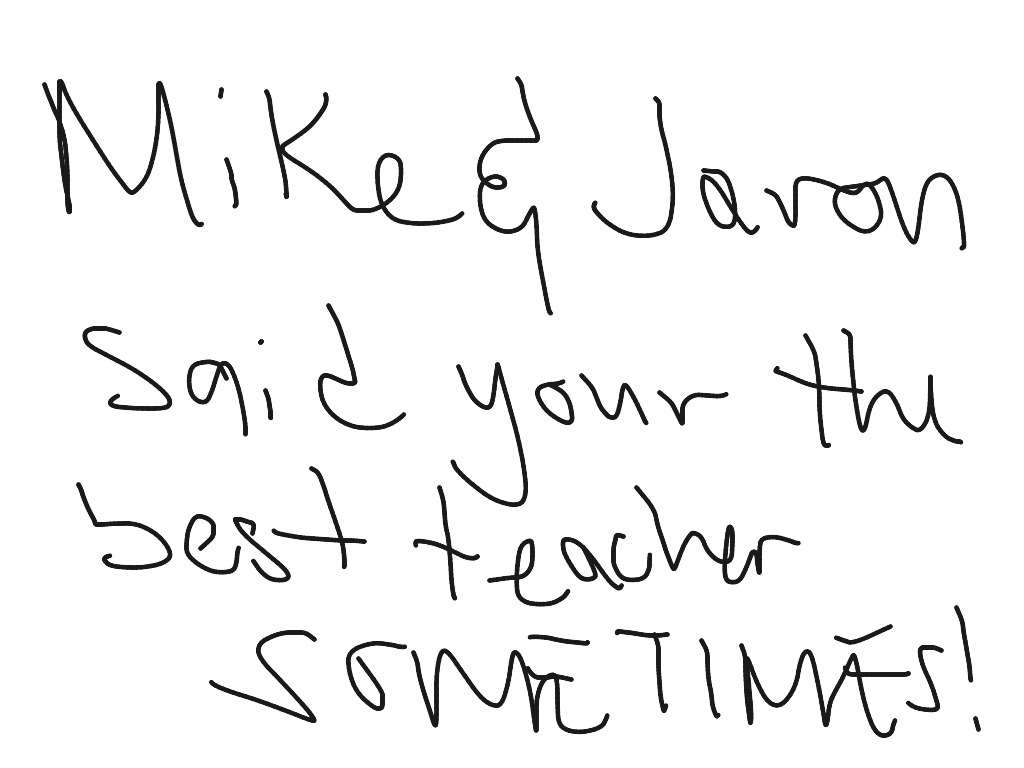 Mike & Jaron
Said your the
best teacher
SOMETIMES!